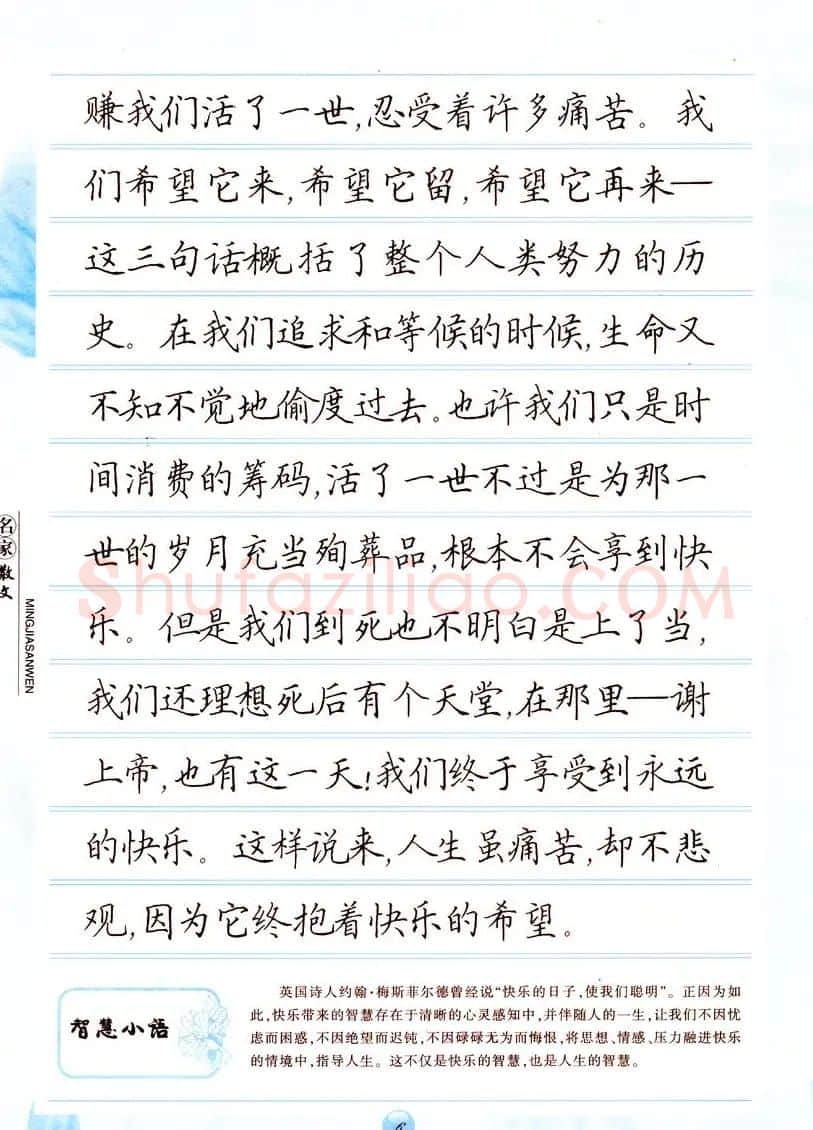 赚我们活了一世,忍受着许多痛苦。我
们希望它来,希望它留,希望它再来—
这三句话概括了整个人类努力的历
史。在我们追求和等候的时候,生命又
不知不觉地偷度过去。也许我们只是时
间消费的筹码,活了一世不过是为那一
世的岁月充当殉葬品,根本不会享到快
乐。但是我们到死也不明白是上了当,
我们还理想死后有个天堂,在那里—谢
上帝,也有这一天!我们终于享受到永远
的快乐。这样说来,人生虽痛苦,却不悲
观,因为它终抱着快乐的希望。
名家散文
MINGJIASANWEN
Shufaziliao.COM
智慧小语
英国诗人约翰·梅斯菲尔德曾经说“快乐的日子,使我们聪明”。正因为如
此,快乐带来的智慧存在于清晰的心灵感知中,并伴随人的一生,让我们不因忧
虑而困惑,不因绝望而迟钝,不因碌碌无为而悔恨,将思想、情感、压力融进快乐
的情境中,指导人生。这不仅是快乐的智慧,也是人生的智慧。